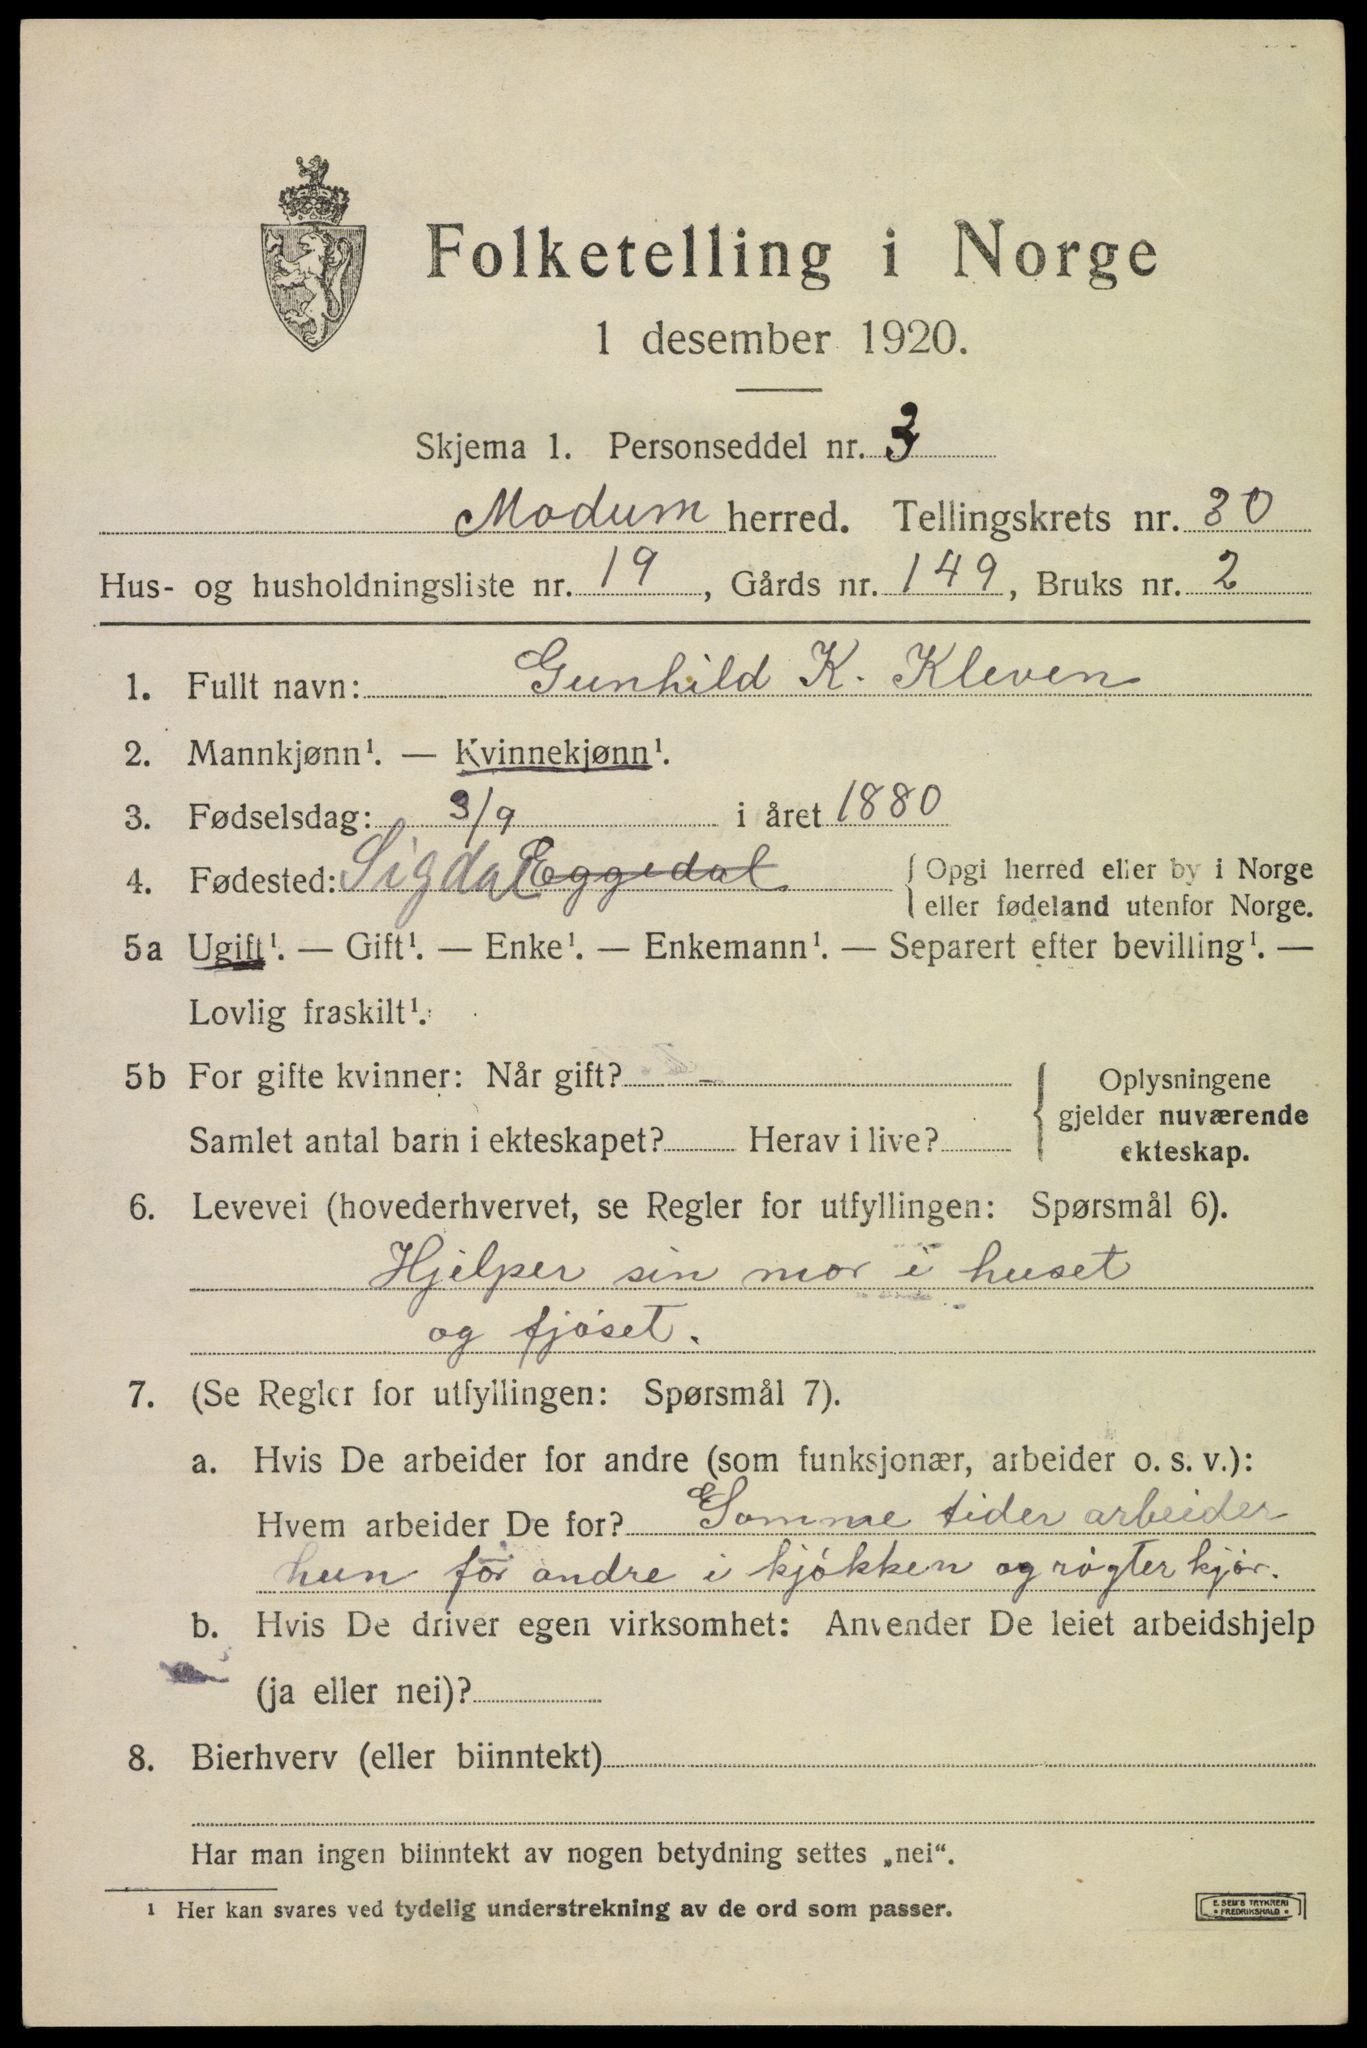 Folketelling i Norge
1 desember 1920.
Skjema 1. Personseddel nr. 3
Modum herred. Tellingskrets nr. 30
Hus- og husholdningsliste nr. 19, Gårds nr. 149, Bruks nr. 2
1. Fullt navn: Gunhild K. Kleven
2. Mannkjønn¹. — Kvinnekjønn¹.
3. Fødselsdag: 3/9 i året 1880
4. Fødested: Sigdal Eggedal { Opgi herred eller by i Norge
eller fødeland utenfor Norge.
5a Ugift¹. — Gift¹. — Enke¹. — Enkemann¹. — Separert efter bevilling¹. —
Lovlig fraskilt¹.
5b For gifte kvinner: Når gift? -
Samlet antal barn i ekteskapet? Herav i live?
{ Oplysningene
gjelder nuværende
ekteskap.
6. Levevei (hovederhvervet, se Regler for utfyllingen: Spørsmål 6).
Hjelper sin mor i huset
og fjøset.
7. (Se Regler for utfyllingen: Spørsmål 7).
a. Hvis De arbeider for andre (som funksjonær, arbeider o. s. v.):
Hvem arbeider De for? Somme tider arbeider
hun for andre i kjøkken og røgter kjør.
b. Hvis De driver egen virksomhet: Anvender De leiet arbeidshjelp
(ja eller nei)?
8. Bierhverv (eller biinntekt)
Har man ingen biinntekt av nogen betydning settes „nei“.
¹ Her kan svares ved tydelig understrekning av de ord som passer.
E. SEM'S TRYKKERI
• FREDRIKSHALD •